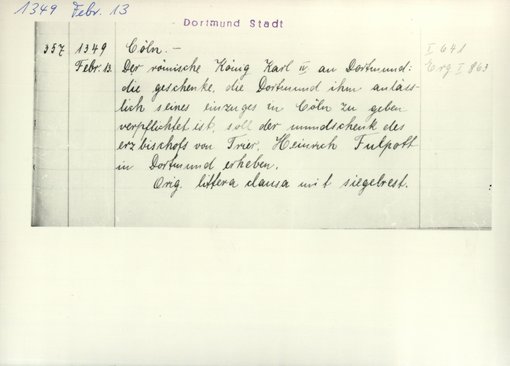 1349 Febr. 13
Dortmund Stadt
357 1349 Cöln. — I 641
Febr. 13. Der römische König Karl IV an Dortmund: Erg I 863
die geschenke, die Dortmund ihm anläss-
lich seines einzuges in Cöln zu geben
verpflichtet ist, soll der mundschenk des
erzbischofs von Trier, Heinrich Fulpott
in Dortmund erheben.
Orig. littera clausa mit siegelrest.